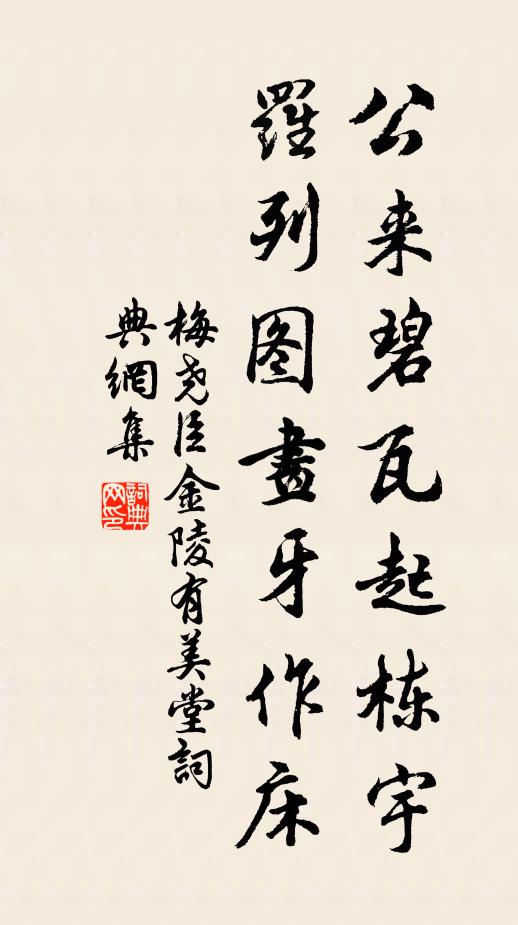 公来碧瓦起栋宇
羅列图畫牙作床
梅尧臣金陵有美堂詞
典網集
詞典
网印